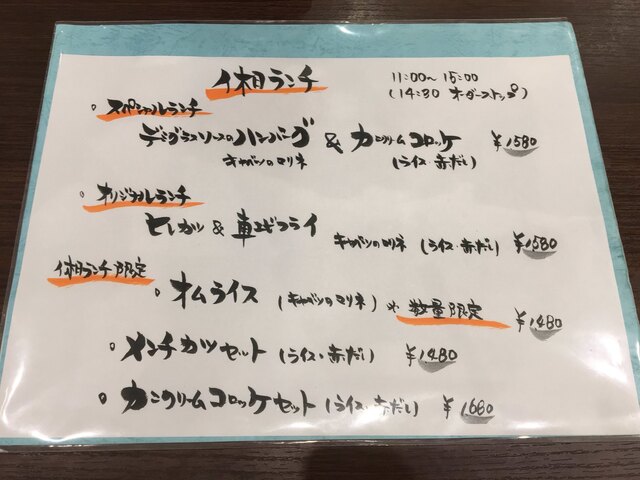 相ランチ
11:00〜15:00
(14:30 オーダーストップ)
スペシャルランチ
デミグラスソースのハンバーグ & カニクリームコロッケ ¥1580
キャベツのマリネ (ライス・赤だし)
オリジナルランチ
ヒレカツ & 車エビフライ キャベツのマリネ (ライス・赤だし) ¥1580
相ランチ限定
オムライス (キャベツのマリネ) ※数量限定 ¥1480
メンチカツセット (ライス・赤だし) ¥1480
カニクリームコロッケセット (ライス・赤だし) ¥1680